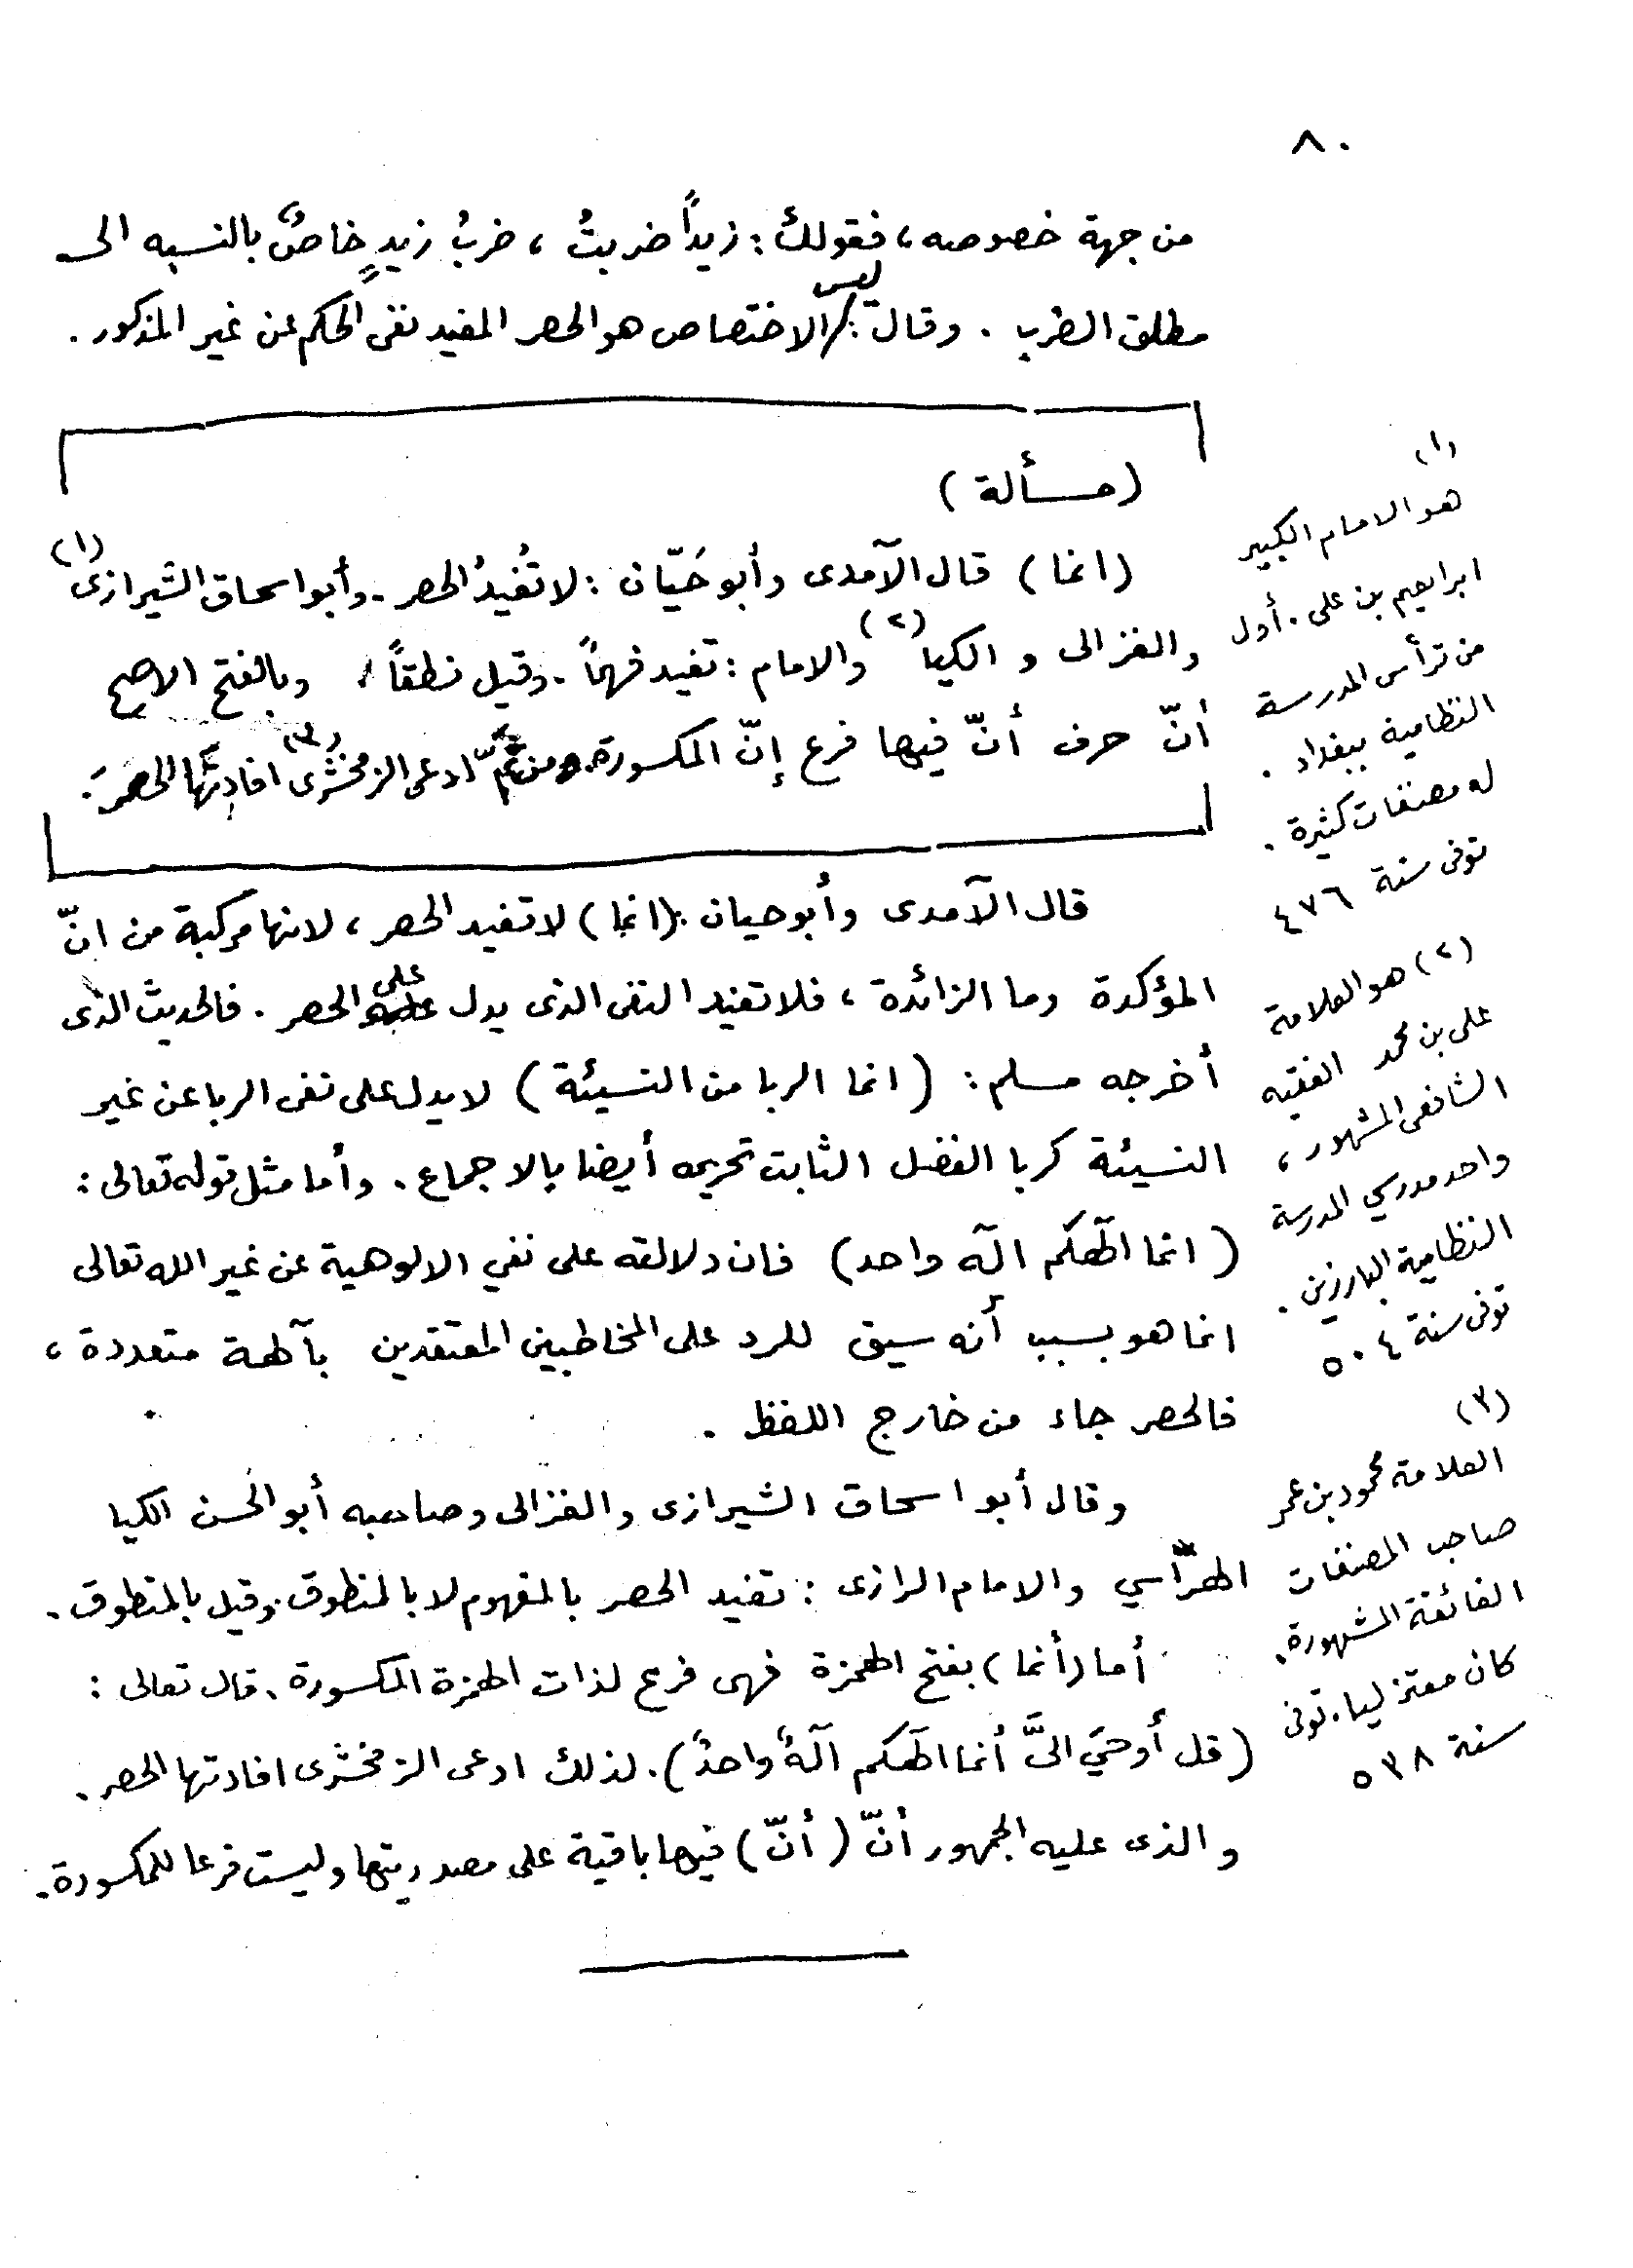 ٨٠
من جهة خصوصه، فقولك: زيداً ضربتُ، ضربُ زيدٍ خاصٌ بالنسبه الى
مطلق الضرب. وقال: ليس الاختصاص هو الحصر المفيد نفى الحكم عن غير المذكور.
(مسألة)
(انما) قال الآمدى وأبو حَيّان: لا تُفيدُ الحصر. وأبو اسحاق الشيرازى (١)
والغزالى و الكيا (٢) والامام: تفيد فهماً. وقيل نطقاً، وبالفتح الاصح
أنّ حرف أنّ فيها فرع إنّ المكسورة. ومن ثمّ ادعى الزمخشرى (٣) افادتَها الحصرَ.
قال الآمدى وأبو حيان: (انما) لا تفيد الحصر، لانها مركبة من انّ
المؤكدة وما الزائدة، فلا تفيد النفى الذى يدل على الحصر. فالحديث الذى
أخرجه مسلم: (انما الربا من النسيئة) لا يدل على نفى الربا عن غير
النسيئة كربا الفضل الثابت تحريمه أيضا بالاجماع. وأما مثل قوله تعالى:
(انما الٓهكم الٓه واحد) فان دلالته على نفي الالوهية عن غير الله تعالى
انما هو بسبب أنه سيق للرد على المخاطبين المعتقدين بآلهة متعددة،
فالحصر جاء من خارج اللفظ.
وقال أبو اسحاق الشيرازى والغزالى وصاحبه أبو الحسن الكيا
الهرّاسي والامام الرازى: تفيد الحصر بالمفهوم لا بالمنطوق. وقيل بالمنطوق.
أما (أنما) بفتح الهمزة فهى فرع لذات الهمزة المكسورة. قال تعالى:
(قل أوحيَ الىَّ أنما الٓهكم الٓهٌ واحدٌ). لذلك ادعى الزمخشرى افادتها الحصر.
والذى عليه الجمهور أنّ (أنّ) فيها باقية على مصدريتها وليست فرعا للمكسورة.
(١)
هو الامام الكبير
ابراهيم بن على. أول
من ترأس المدرسة
النظامية ببغداد.
له مصنفات كثيرة.
توفى سنة ٤٧٦
(٢) هو العلامة
على بن محمد الفقيه
الشافعى المشهور،
واحد مدرسي المدرسة
النظامية البارزين.
توفى سنة ٥٠٤
(٣)
العلامة محمود بن عمر
صاحب المصنفات
الفائقة المشهورة.
كان معتزليا. توفى
سنة ٥٣٨